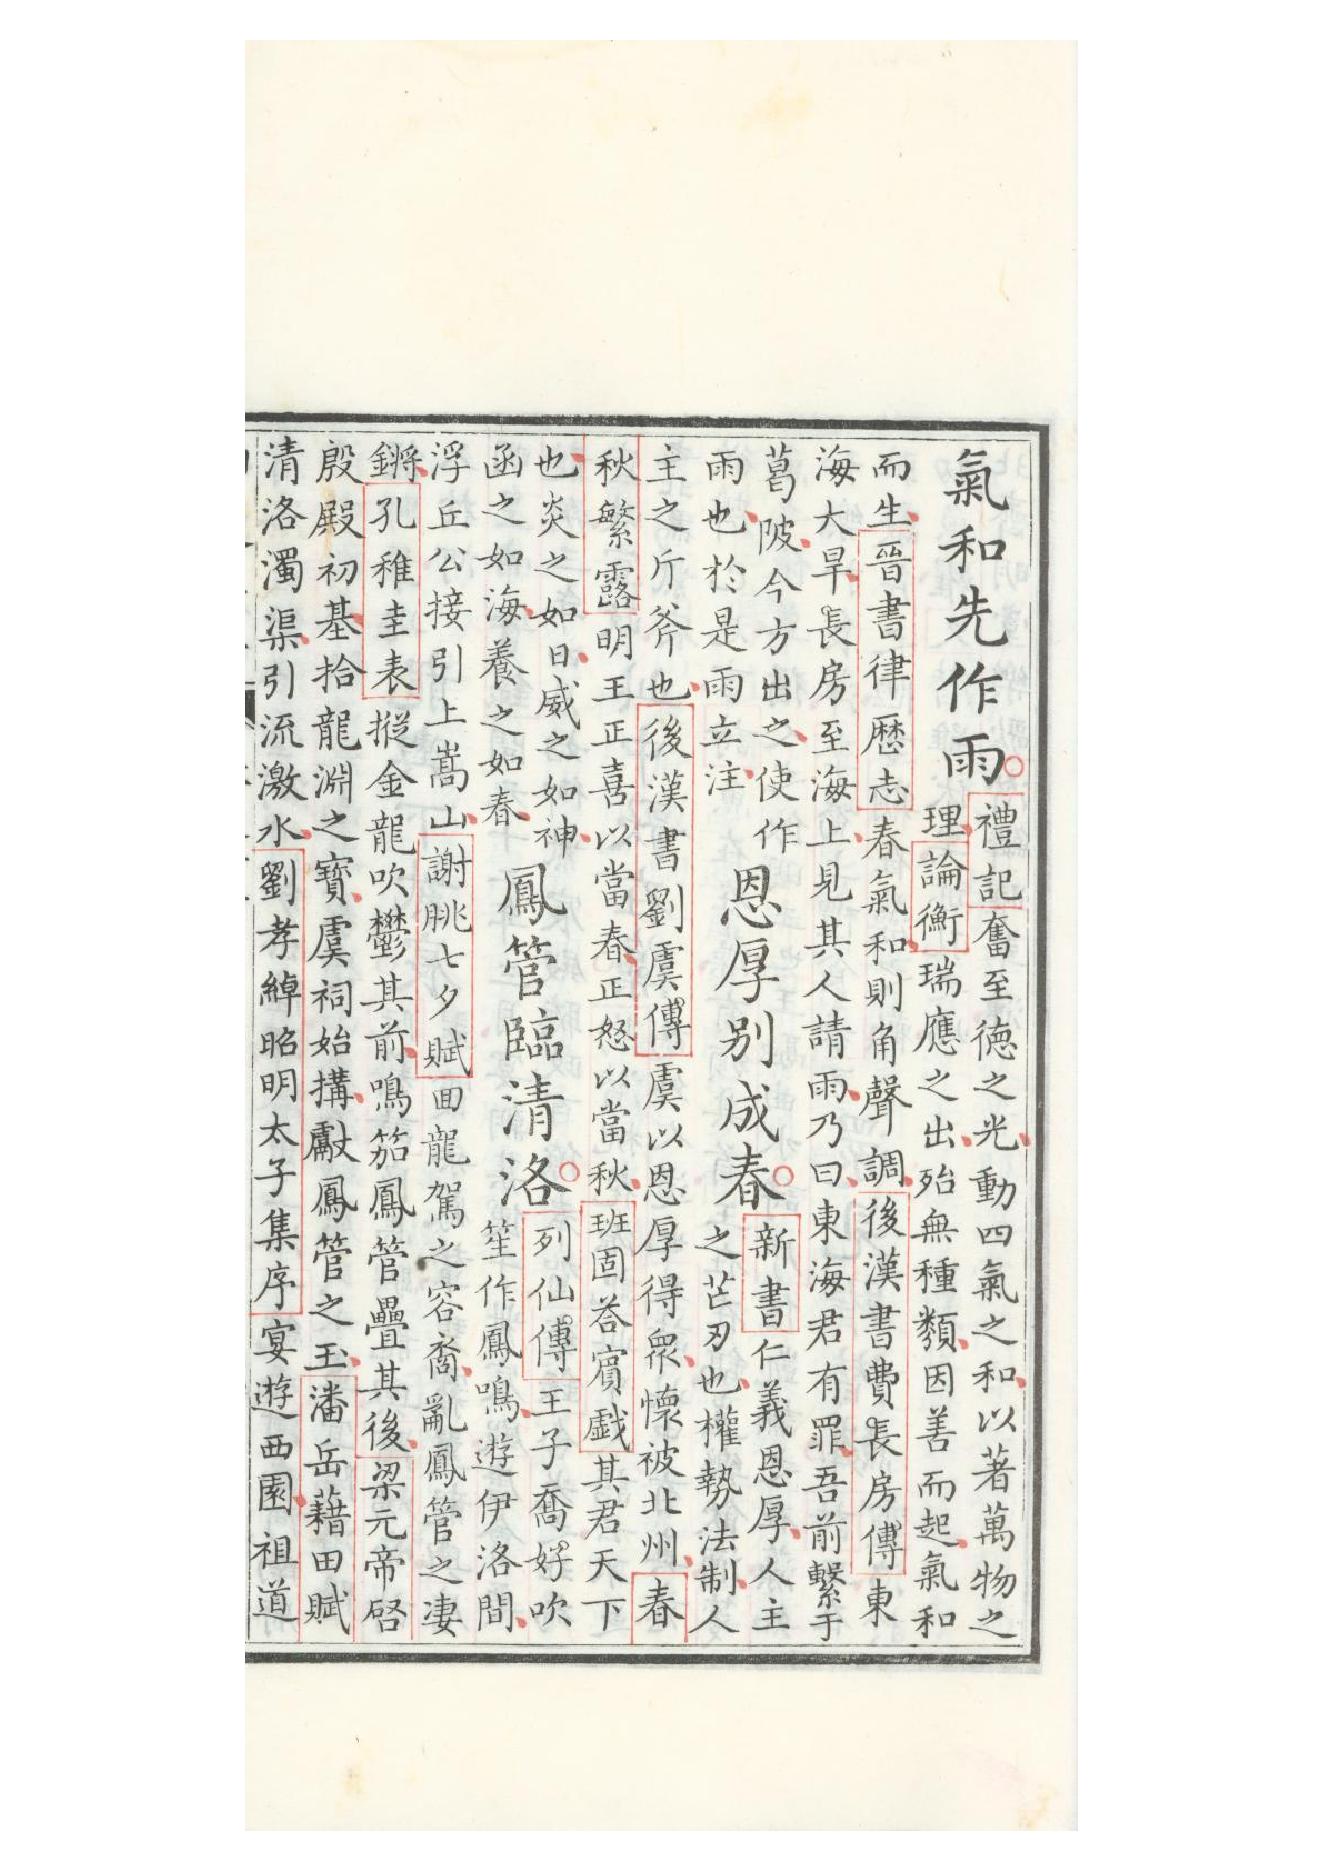 氣和先作雨
禮記奮至德之光動四氣之和以著萬物之
理論衡瑞應之出殆無種類因善而起氣和
而生晉書律歷志春氣和則角聲調後漢書費長房傳東
海大旱長房至海上見其人請雨乃曰東海君有罪吾前繫于
葛陂今方出之使作
雨也於是雨立注
恩厚別成春
新書仁義恩厚人主
之芒刃也權勢法制人
主之斤斧也後漢書劉虞傳虞以恩厚得眾懷被北州春
秋繁露明王正喜以當春正怒以當秋班固荅賓戲其君天下
也炎之如日威之如神
函之如海養之如春
鳳管臨清洛
列仙傳王子喬好吹
笙作鳳鳴遊伊洛間
浮丘公接引上嵩山謝朓七夕賦回龍駕之容裔亂鳳管之凄
鏘孔稚圭表摐金龍吹鬱其前鳴笳鳳管疊其後梁元帝啓
殷殿初基拾龍淵之寶虞祠始搆獻鳳管之玉潘岳藉田賦
清洛濁渠引流激水劉孝綽昭明太子集序宴遊西園祖道